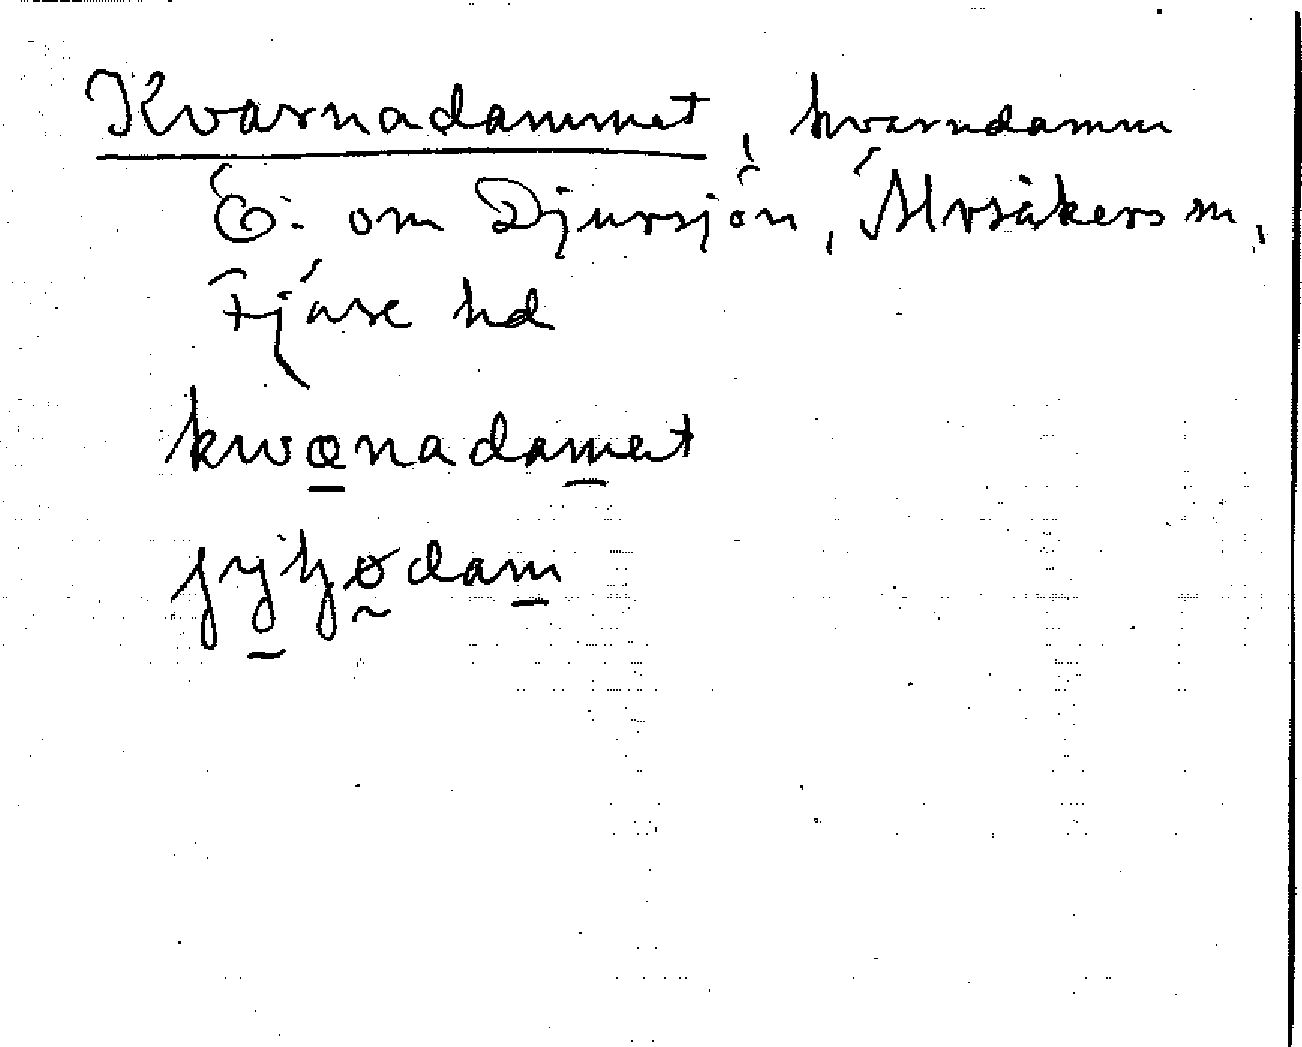 Kvarnadammet, kvarndamm
Ö. om Djursjön, Älvsåkers sn,
Fjäre hd
kwœnadamet
jyʒødam